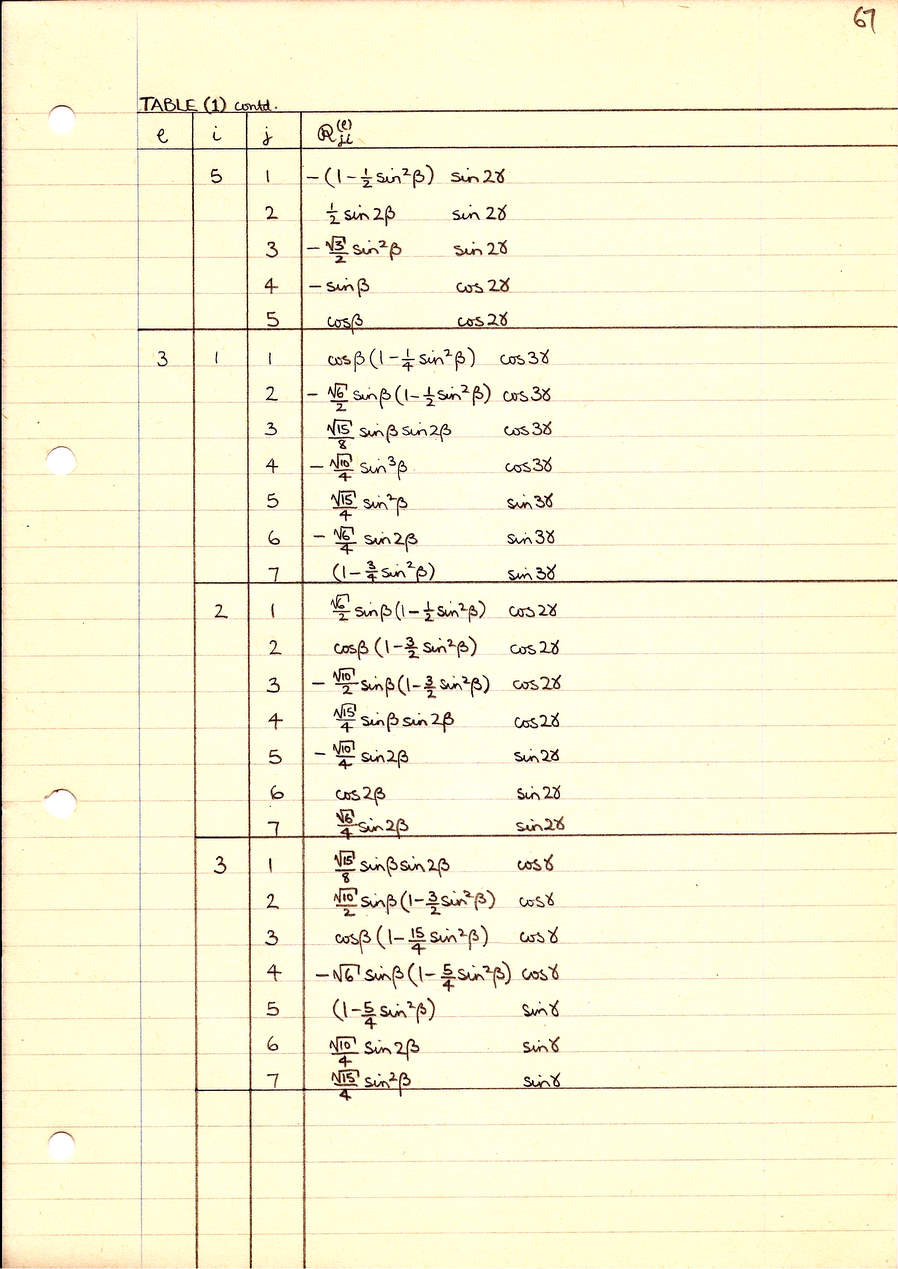 67
TABLE (1) contd.
ℓ i j ℝ_{ji}^{(ℓ)}
5 1 −(1−½ sin²β) sin 2γ
2 ½ sin 2β sin 2γ
3 −√3/2 sin²β sin 2γ
4 −sin β cos 2γ
5 cosβ cos 2γ
3 1 1 cosβ(1−¼ sin²β) cos 3γ
2 −√6/2 sinβ(1−½ sin²β) cos 3γ
3 √15/8 sinβ sin2β cos3γ
4 −√10/4 sin³β cos3γ
5 √15/4 sin²β sin3γ
6 −√6/4 sin 2β sin 3γ
7 (1−¾ sin²β) sin 3γ
2 1 √6/2 sinβ(1−½ sin²β) cos 2γ
2 cosβ(1−3/2 sin²β) cos 2γ
3 −√10/2 sinβ(1−3/2 sin²β) cos 2γ
4 √15/4 sinβ sin 2β cos2γ
5 −√10/4 sin2β sin2γ
6 cos 2β sin 2γ
7 √6/4 sin2β sin2γ
3 1 √15/8 sinβ sin2β cosγ
2 √10/2 sinβ(1−3/2 sin²β) cosγ
3 cosβ(1−15/4 sin²β) cosγ
4 −√6 sinβ(1−5/4 sin²β) cosγ
5 (1−5/4 sin²β) sinγ
6 √10/4 sin 2β sinγ
7 √15/4 sin²β sinγ